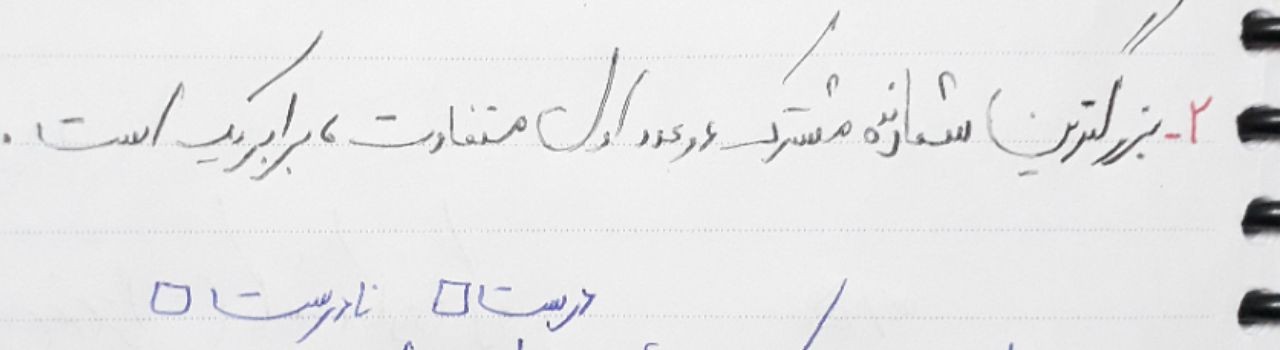 ۲- بزرگترین شمارنده مشترک دو عدد اول متفاوت، برابر یک است.
درست □ نادرست □